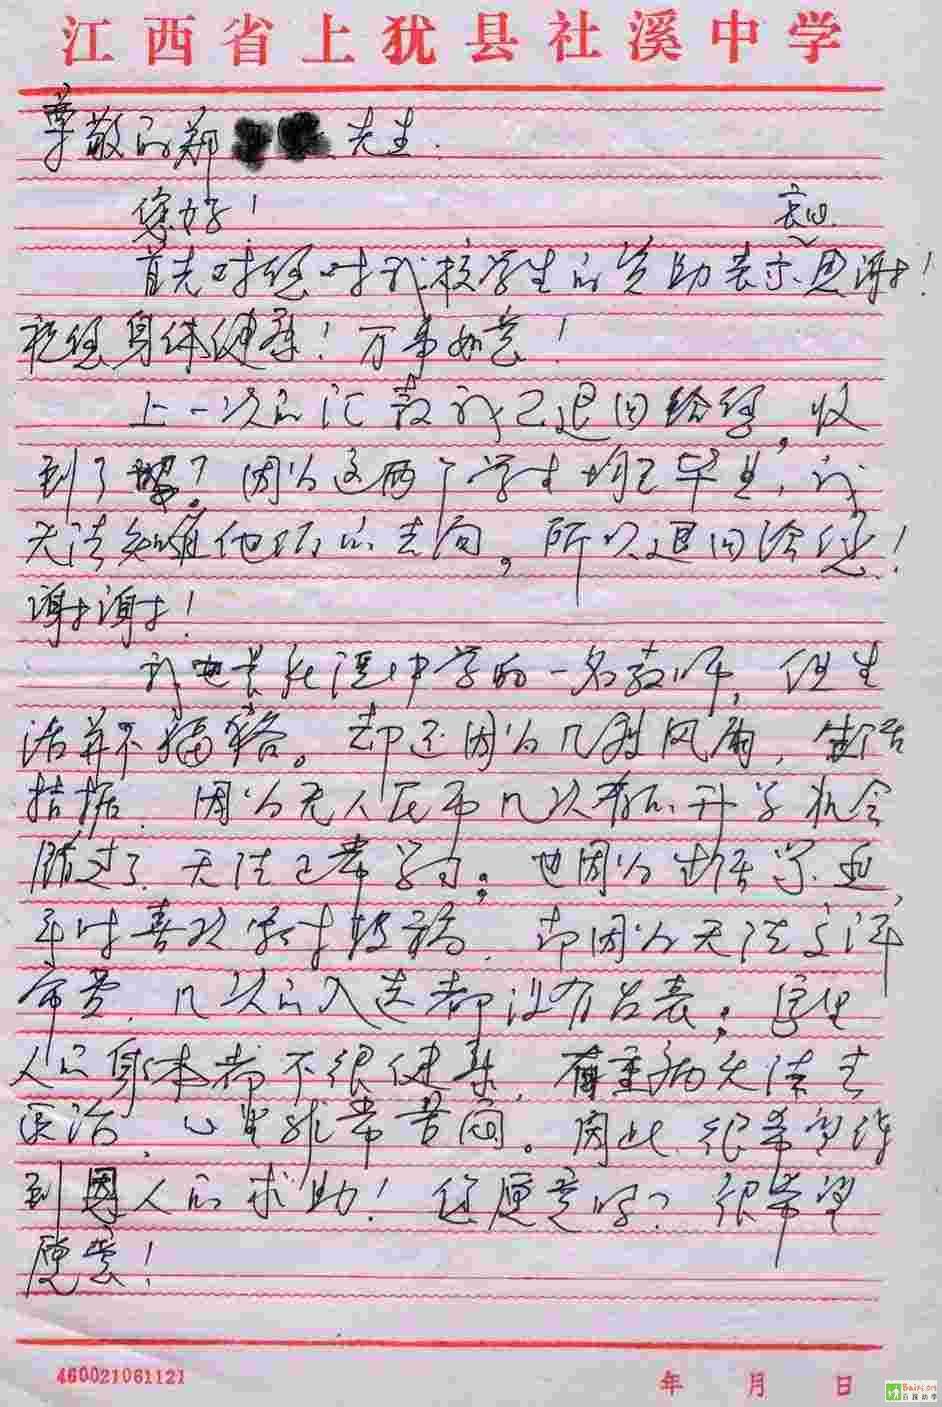 江西省上犹县社溪中学
尊敬的郑 先生:
您好!
衷心
首先对您对我校学生的资助表示感谢!
祝您身体健康!万事如意!
上一次的汇款我已退回给您,收
到了吗?因为这两个学生均已毕业,我
无法知道他们的去向。所以退回给您!
谢谢!
我也是社溪中学的一名教师,但生
活并不富裕。却还因为几场风雨,生活
拮据.因为无人民币几次有的升学机会
错过了.无法正常学习。也因为生活
平时喜欢写投稿.却因为无法交评
审费.几次的入选都没有发表。家里
人的身体都不很健康,有重病无法去
医治,心里非常苦闷。因此,很希望得
到 人的求助!您愿意吗?很希望
愿意!
460021061121
年 月 日